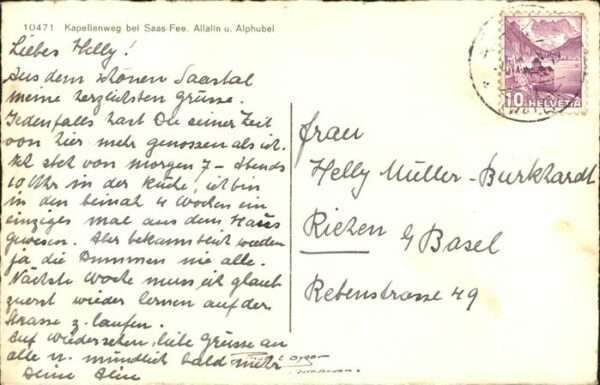 10471 Kapellenweg bei Saas Fee. Allalin u. Alphubel
Liebes Helly!
Aus dem schönen Saastal
meine herzlichsten Grüsse.
Jedenfalls hast Du seiner Zeit
von hier mehr genossen als ich.
Ich steh von morgen 7 - Abends
10 Uhr in der Küche, ich bin
in den beinah 4 Wochen ein
einziges mal aus dem Haus
gewesen. Aber bekanntlich werden
ja die Dummen nie alle.
Nächste Woche muss ich glaub
zuerst wieder lernen auf der
Strasse z. laufen.
Auf Wiedersehen, liebe Grüsse an
alle u. mündlich bald mehr
Deine
10 HELVETIA
Frau
Helly Müller-Burkhardt
Riehen b/Basel
Rebenstrasse 49